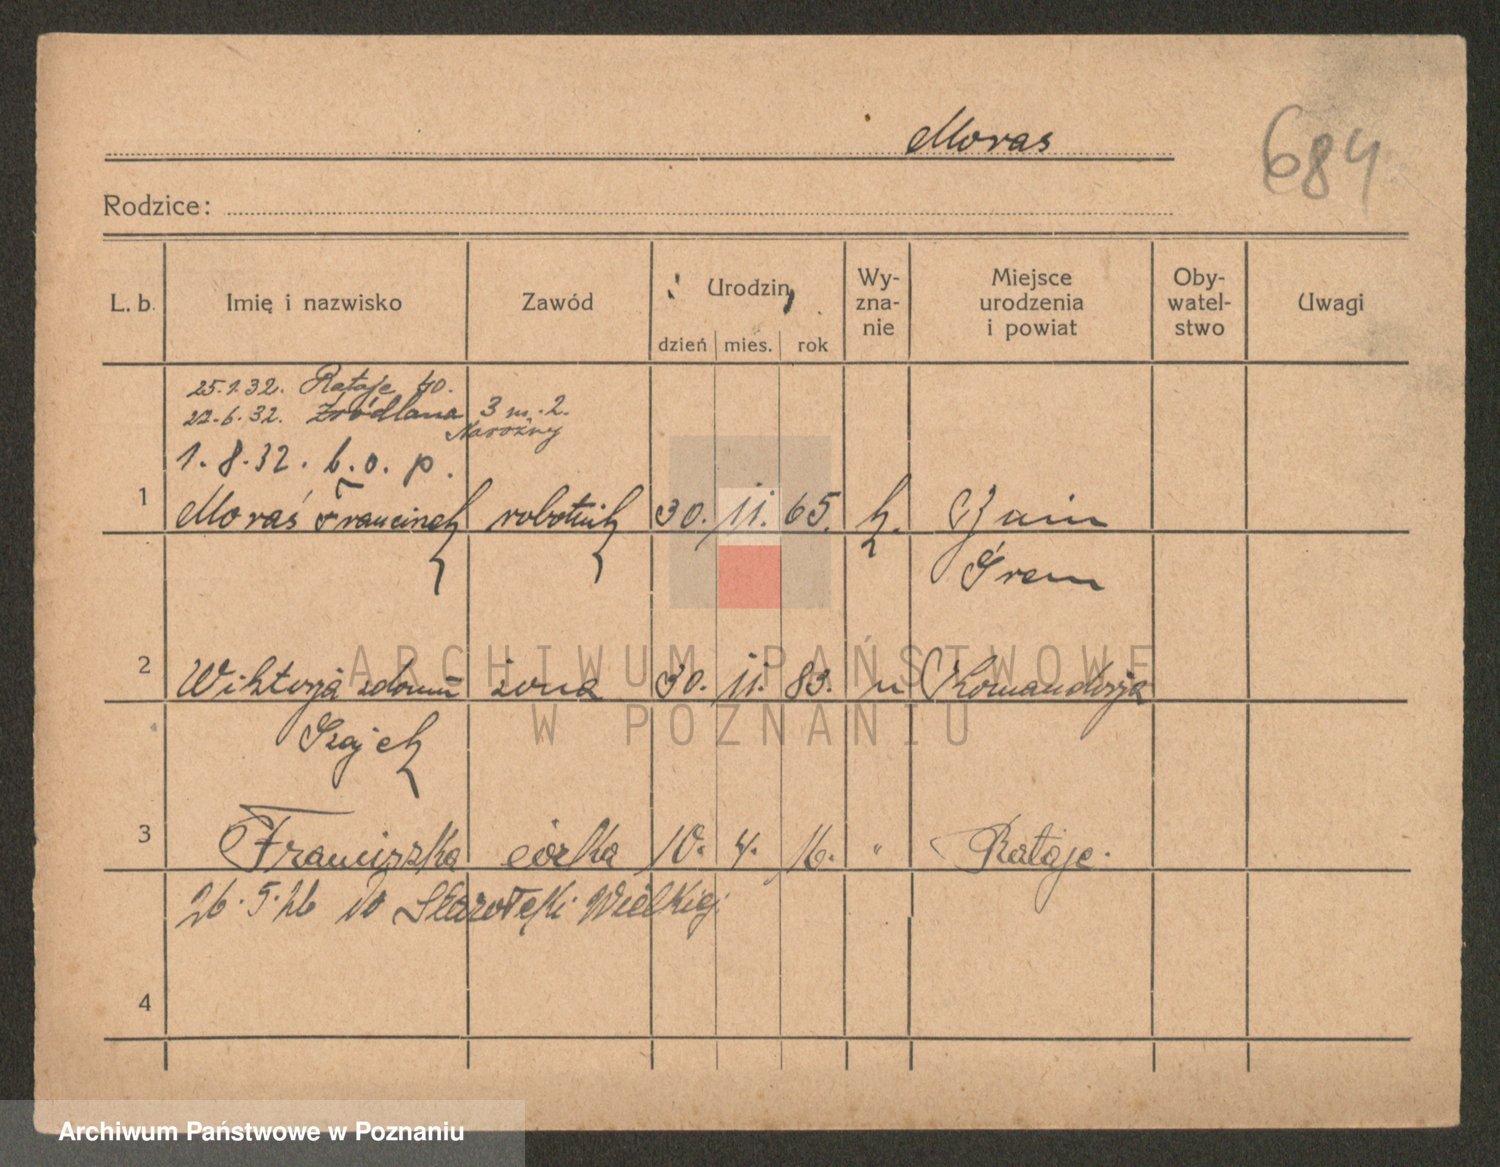 Moras
684
Rodzice:
L. b. Imię i nazwisko Zawód Urodzin Wy-zna-nie Miejsce urodzenia i powiat Oby-watel-stwo Uwagi
dzień mies. rok
25.1.32. Rataje 40.
22.6.32. Źródlana 3 m. 2.
Narożny
1.8.32. b. o. p.
1 Moraś Franciszek robotnik 30. 11. 65. k.
Śrem
2 Wiktorja zdomu żona 30. 11. 83. " Komandorja
ARCHIWUM PAŃSTWOWE
W POZNANIU
3 Franciszka córka 10. 4. 16. " Rataje.
26.5.26 do Starołęki Wielkiej
4
Archiwum Państwowe w Poznaniu